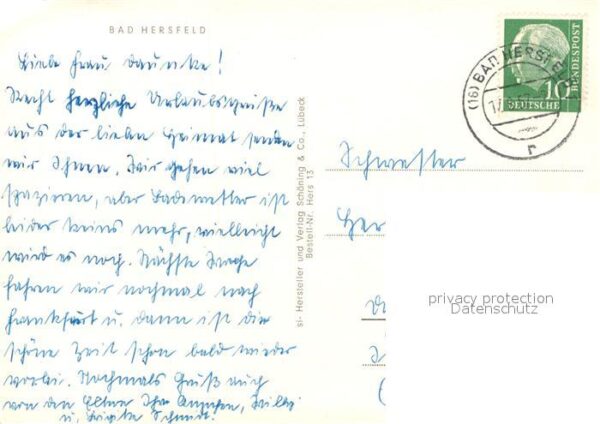 BAD HERSFELD
Liebe Frau Daunke!
Recht herzliche Urlaubsgrüße
aus der lieben Heimat senden
wir Ihnen. Wir gehen viel
spazieren, aber Badewetter ist
leider keins mehr, vielleicht
wird es noch. Nächste Tage
fahren wir nochmal nach
Frankfurt u. dann ist die
schöne Zeit schon bald wieder
vorbei. Nochmals Gruß auch
von den Eltern Ihr Annchen, Willy
u. Brigitte Schmidt.
si- Hersteller und Verlag Schöning & Co., Lübeck
Bestell-Nr. Hers 13
(16) BAD HERSFELD
r
10
DEUTSCHE
BUNDESPOST
Schwester
Her
privacy protection
Datenschutz